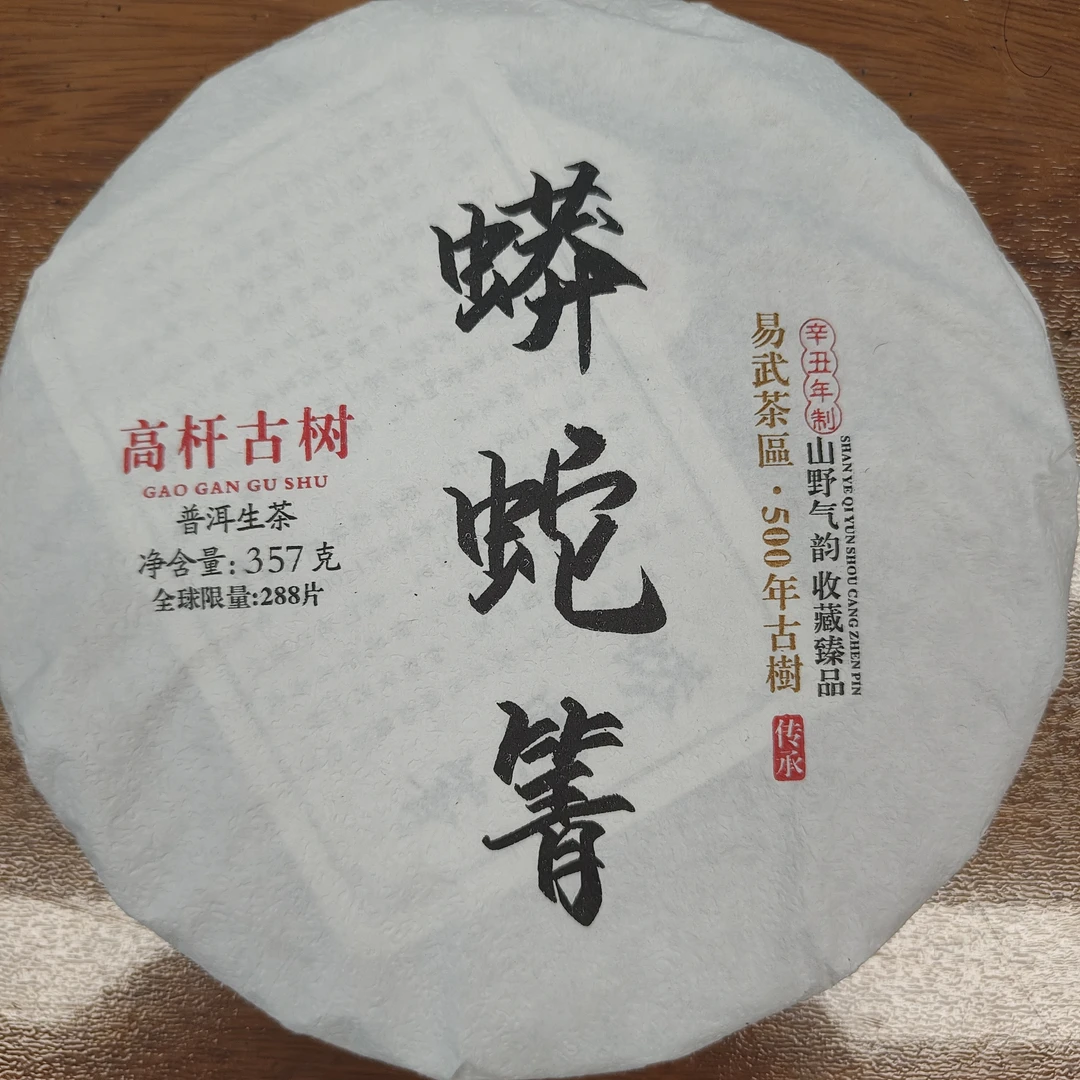 蟒蛇箐
高杆古树
GAO GAN GU SHU
普洱生茶
净含量：357克
全球限量:288片
辛丑年制
山野气韵 收藏臻品
SHAN YE QI YUN SHOU CANG ZHEN PIN
易武茶區·500年古樹
传承